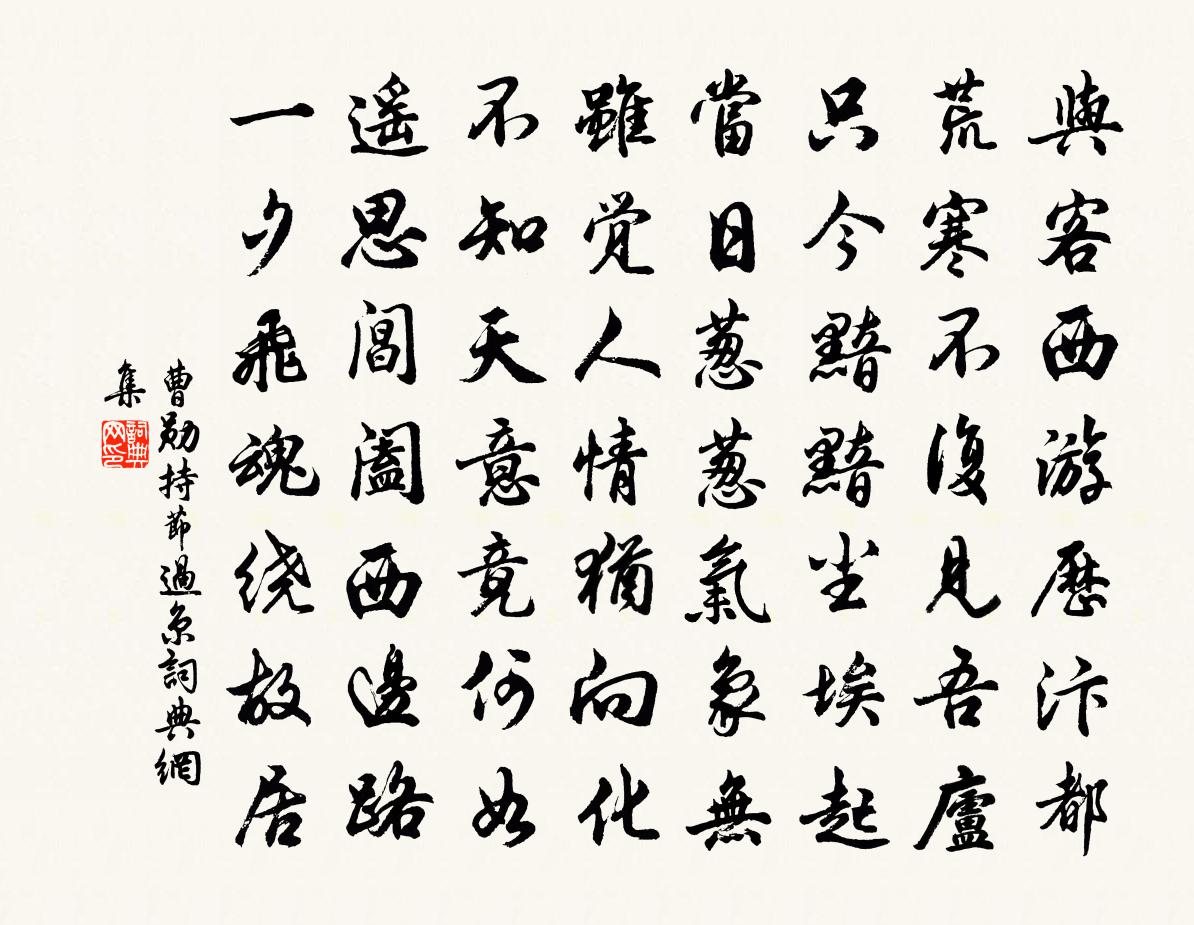 與客西游歷汴都
荒寒不復見吾廬
只今黯黯尘埃起
當日葱葱氣象無
雖觉人情猶向化
不知天意竟何如
遥思閶闔西邊路
一夕飛魂绕故居
曹勛持節過京詞典網
集
詞典网印